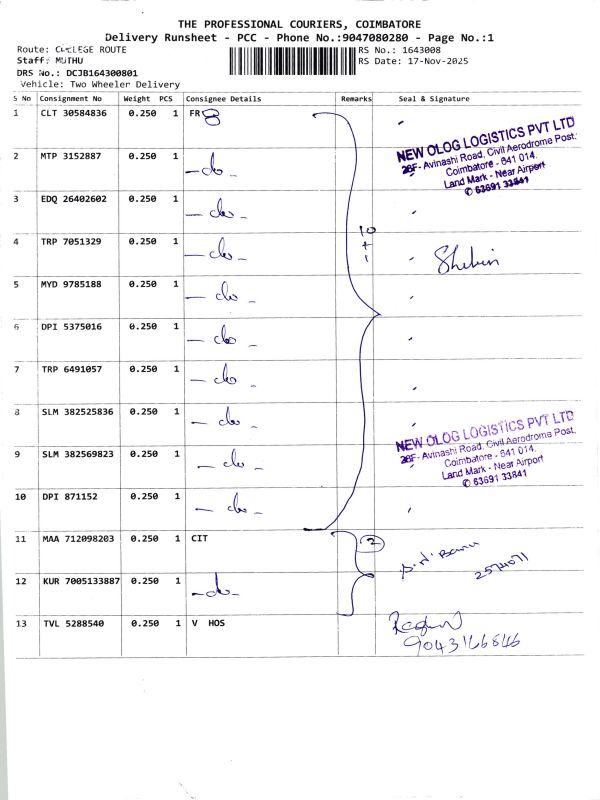 THE PROFESSIONAL COURIERS, COIMBATORE
Delivery Runsheet - PCC - Phone No.:9047080280 - Page No.:1
Route: COLLEGE ROUTE
RS No.: 1643008
Staff: MUTHU
RS Date: 17-Nov-2025
DRS No.: DCJB164300801
Vehicle: Two Wheeler Delivery
S No Consignment No Weight PCS Consignee Details Remarks Seal & Signature
1 CLT 30584836 0.250 1 FR
2 MTP 3152887 0.250 1 -do-
3 EDQ 26402602 0.250 1 -do-
4 TRP 7051329 0.250 1 -do-
5 MYD 9785188 0.250 1 -do-
6 DPI 5375016 0.250 1 -do-
7 TRP 6491057 0.250 1 -do-
8 SLM 382525836 0.250 1 -do-
9 SLM 382569823 0.250 1 -do-
10 DPI 871152 0.250 1 -do-
10+1
NEW OLOG LOGISTICS PVT LTD
28F- Avinashi Road, Civil Aerodrome Post,
Coimbatore - 641 014.
Land Mark - Near Airport
✆ 63691 33841
Shebin
NEW OLOG LOGISTICS PVT LTD
28F- Avinashi Road, Civil Aerodrome Post,
Coimbatore - 641 014.
Land Mark - Near Airport
✆ 63691 33841
11 MAA 712098203 0.250 1 CIT 2
12 KUR 7005133887 0.250 1 -do-
2574071
13 TVL 5288540 0.250 1 V HOS
9043166846